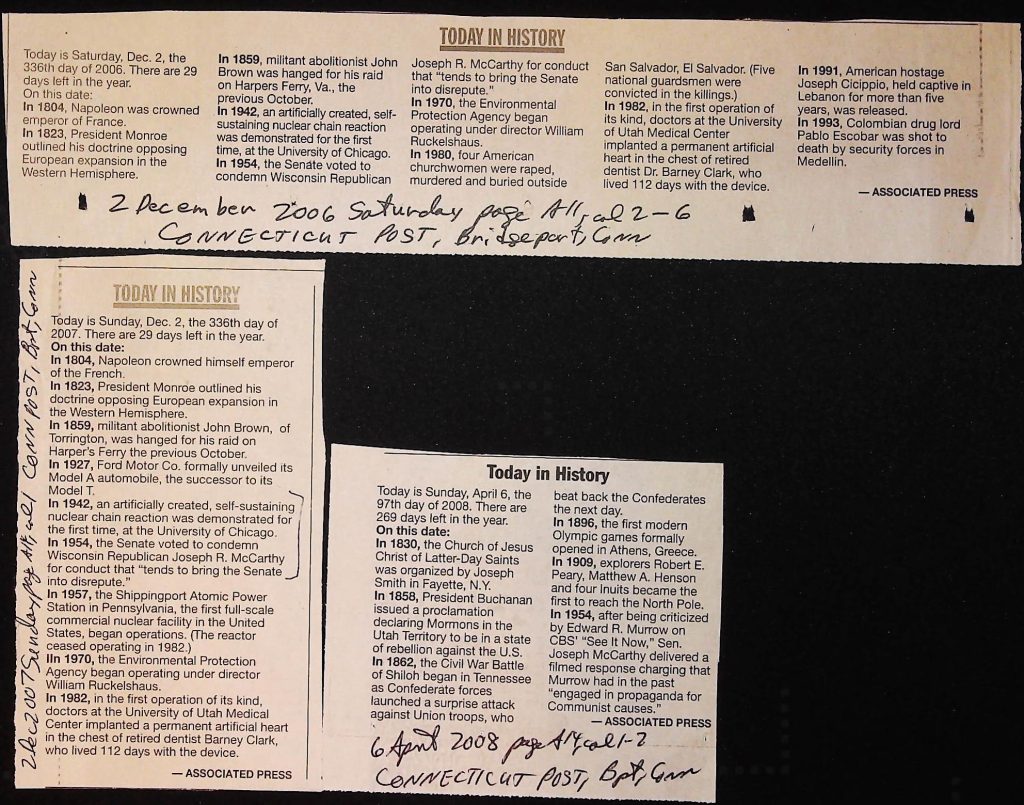 TODAY IN HISTORY
Today is Saturday, Dec. 2, the
336th day of 2006. There are 29
days left in the year.
On this date:
In 1804, Napoleon was crowned
emperor of France.
In 1823, President Monroe
outlined his doctrine opposing
European expansion in the
Western Hemisphere.
In 1859, militant abolitionist John
Brown was hanged for his raid
on Harpers Ferry, Va., the
previous October.
In 1942, an artificially created, self-
sustaining nuclear chain reaction
was demonstrated for the first
time, at the University of Chicago.
In 1954, the Senate voted to
condemn Wisconsin Republican
Joseph R. McCarthy for conduct
that “tends to bring the Senate
into disrepute.”
In 1970, the Environmental
Protection Agency began
operating under director William
Ruckelshaus.
In 1980, four American
churchwomen were raped,
murdered and buried outside
San Salvador, El Salvador. (Five
national guardsmen were
convicted in the killings.)
In 1982, in the first operation of
its kind, doctors at the University
of Utah Medical Center
implanted a permanent artificial
heart in the chest of retired
dentist Dr. Barney Clark, who
lived 112 days with the device.
In 1991, American hostage
Joseph Cicippio, held captive in
Lebanon for more than five
years, was released.
In 1993, Colombian drug lord
Pablo Escobar was shot to
death by security forces in
Medellin.
— ASSOCIATED PRESS
2 December 2006 Saturday page A11, col 2-6
CONNECTICUT POST, Bridgeport, Conn
2 Dec 2007 Sunday page A14, col 1 CONN POST, Bpt, Conn
TODAY IN HISTORY
Today is Sunday, Dec. 2, the 336th day of
2007. There are 29 days left in the year.
On this date:
In 1804, Napoleon crowned himself emperor
of the French.
In 1823, President Monroe outlined his
doctrine opposing European expansion in
the Western Hemisphere.
In 1859, militant abolitionist John Brown, of
Torrington, was hanged for his raid on
Harper's Ferry the previous October.
In 1927, Ford Motor Co. formally unveiled its
Model A automobile, the successor to its
Model T.
In 1942, an artificially created, self-sustaining
nuclear chain reaction was demonstrated for
the first time, at the University of Chicago.
In 1954, the Senate voted to condemn
Wisconsin Republican Joseph R. McCarthy
for conduct that “tends to bring the Senate
into disrepute.”
In 1957, the Shippingport Atomic Power
Station in Pennsylvania, the first full-scale
commercial nuclear facility in the United
States, began operations. (The reactor
ceased operating in 1982.)
IIn 1970, the Environmental Protection
Agency began operating under director
William Ruckelshaus.
In 1982, in the first operation of its kind,
doctors at the University of Utah Medical
Center implanted a permanent artificial heart
in the chest of retired dentist Barney Clark,
who lived 112 days with the device.
— ASSOCIATED PRESS
Today in History
Today is Sunday, April 6, the
97th day of 2008. There are
269 days left in the year.
On this date:
In 1830, the Church of Jesus
Christ of Latter-Day Saints
was organized by Joseph
Smith in Fayette, N.Y.
In 1858, President Buchanan
issued a proclamation
declaring Mormons in the
Utah Territory to be in a state
of rebellion against the U.S.
In 1862, the Civil War Battle
of Shiloh began in Tennessee
as Confederate forces
launched a surprise attack
against Union troops, who
beat back the Confederates
the next day.
In 1896, the first modern
Olympic games formally
opened in Athens, Greece.
In 1909, explorers Robert E.
Peary, Matthew A. Henson
and four Inuits became the
first to reach the North Pole.
In 1954, after being criticized
by Edward R. Murrow on
CBS' “See It Now,” Sen.
Joseph McCarthy delivered a
filmed response charging that
Murrow had in the past
“engaged in propaganda for
Communist causes.”
— ASSOCIATED PRESS
6 April 2008 page A14, col 1-2
CONNECTICUT POST, Bpt, Conn